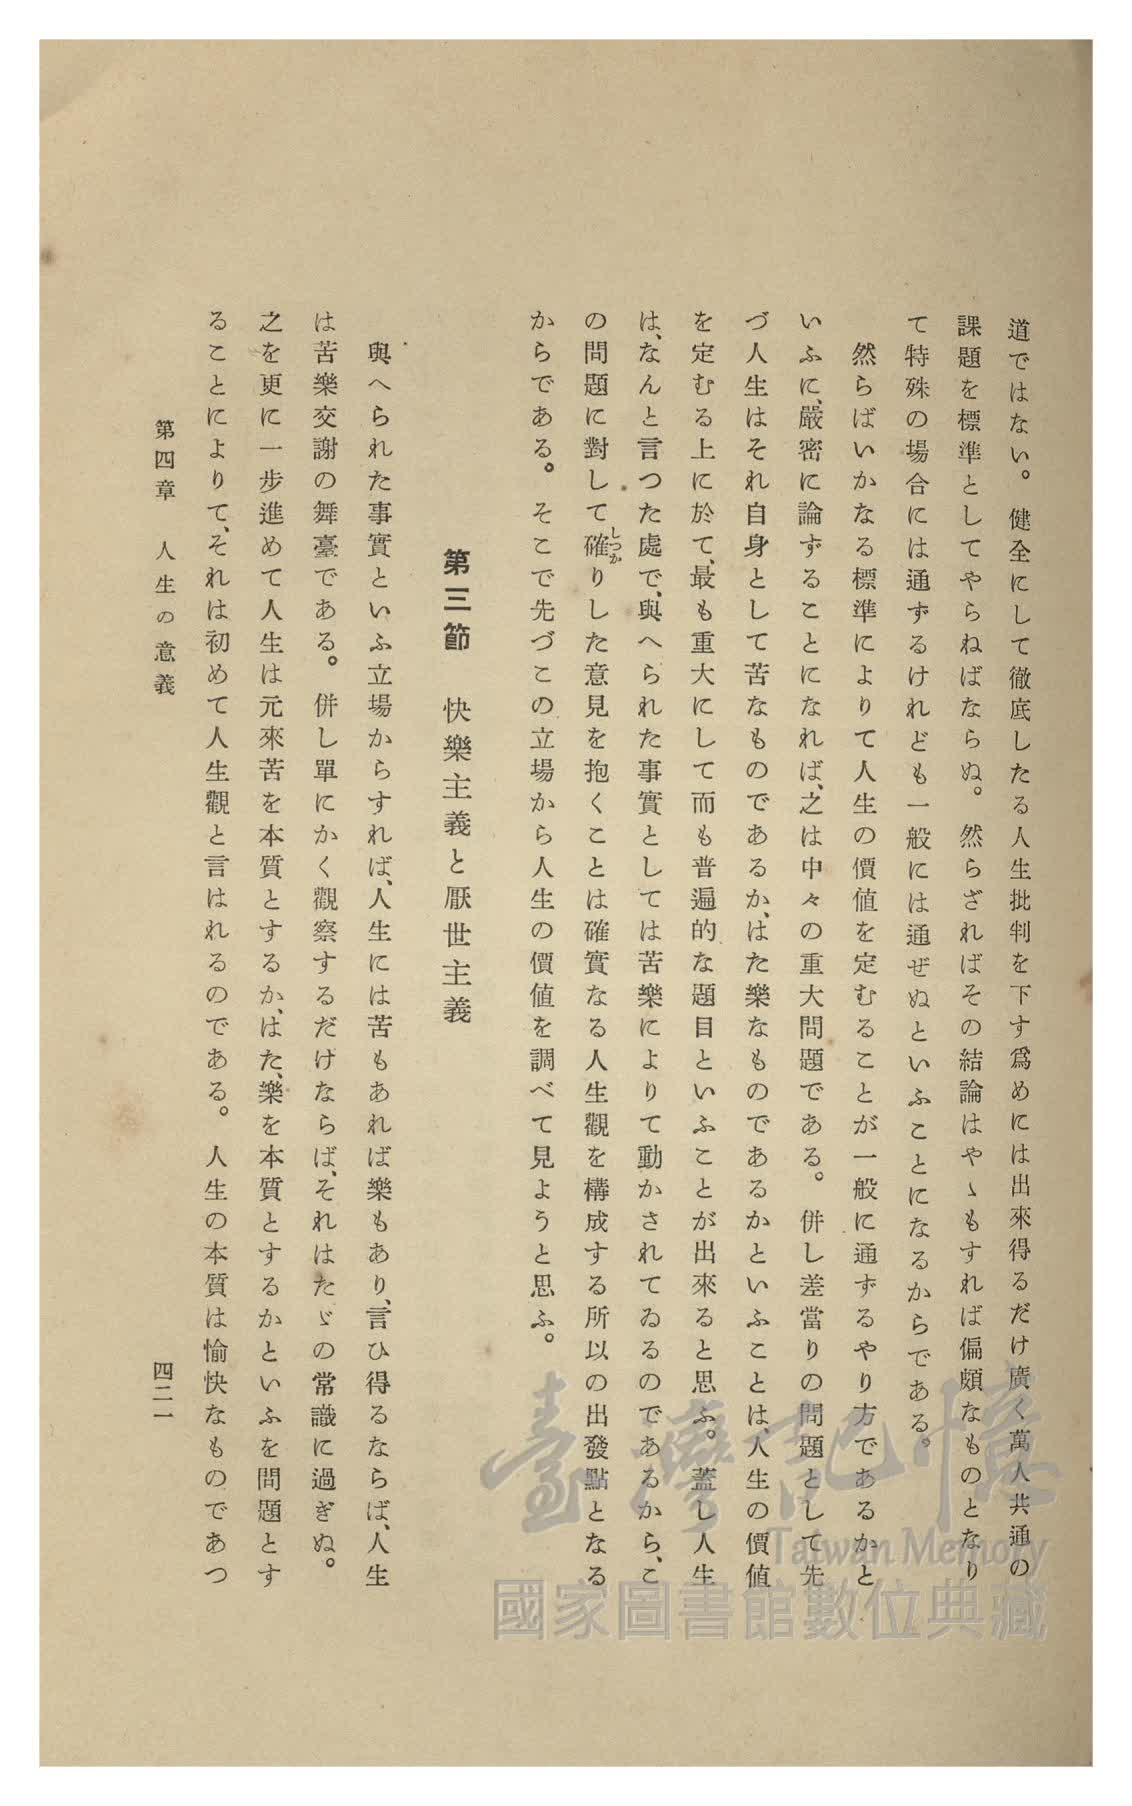 道ではない。健全にして徹底したる人生批判を下す爲めには出來得るだけ廣く萬人共通の
課題を標準としてやらねばならぬ。然らざればその結論はやゝもすれば偏頗なものとなり
て特殊の場合には通ずるけれども一般には通ぜぬといふことになるからである。
然らばいかなる標準によりて人生の價値を定むることが一般に通ずるやり方であるかと
いふに、嚴密に論ずることになれば、之は中々の重大問題である。併し差當りの問題として先
づ人生はそれ自身として苦なものであるか、はた樂なものであるかといふことは、人生の價値
を定むる上に於て、最も重大にして而も普遍的な題目といふことが出來ると思ふ。蓋し人生
は、なんと言つた處で、與へられた事實としては苦樂によりて動かされてゐるのであるから、こ
の問題に對して確りした意見を抱くことは確實なる人生觀を構成する所以の出發點となる
しつか
からである。そこで先づこの立場から人生の價値を調べて見ようと思ふ。
第三節 快樂主義と厭世主義
與へられた事實といふ立場からすれば、人生には苦もあれば樂もあり、言ひ得るならば、人生
は苦樂交謝の舞臺である。併し單にかく觀察するだけならば、それはたゞの常識に過ぎぬ。
之を更に一步進めて人生は元來苦を本質とするか、はた、樂を本質とするかといふを問題とす
ることによりて、それは初めて人生觀と言はれるのである。人生の本質は愉快なものであつ
第四章 人生の意義
四二一
臺灣記憶
Taiwan Memory
國家圖書館數位典藏